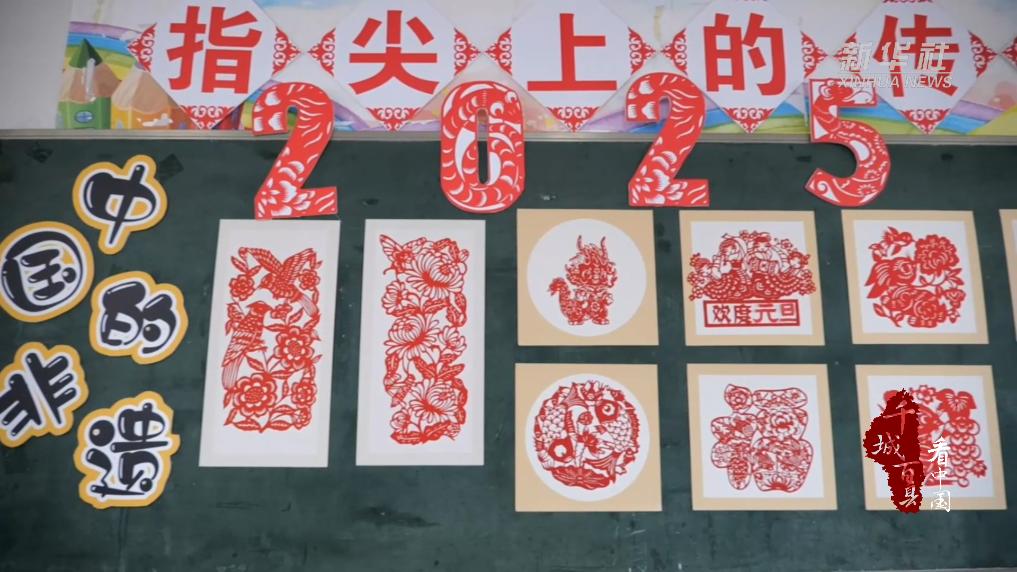 指尖上的传
新华社
XINHUA NEWS
2025
中国的非遗
欢度元旦
千城百县
看中国